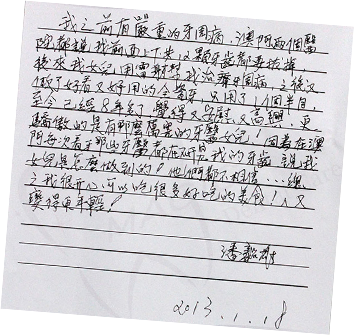 我之前有嚴重的牙周病,澳門兩個醫
院都說我前面上下共12顆牙齒都要拔掉
後來我女兒用雷射幫我治療牙周病,之後又
做了好看又好用的全瓷牙,只用了1個半月,
至今已經8年了 覺得又安慰又高興!更
驕傲的是有那麼厲害的牙醫女兒!因為在澳
門每次看牙那些牙醫都在研究我的牙齒,說我
女兒是怎麼做到的!他們都不相信……總
之我很開心可以吃很多好吃的美食!人又
變得更年輕!
潘
2013.1.18